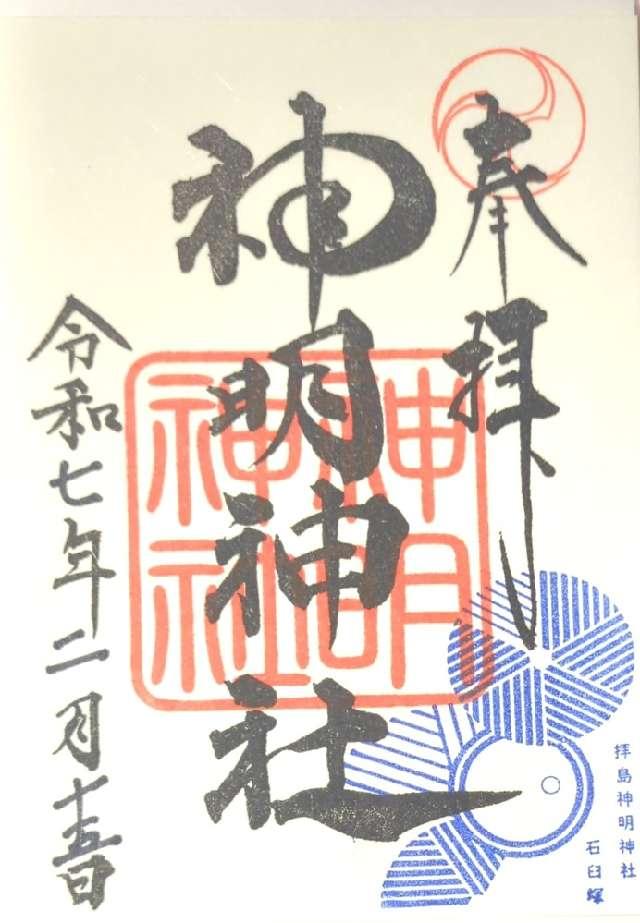 奉拝
神明神社
神明神社
令和七年二月十五日
拝島神明神社
石臼塚